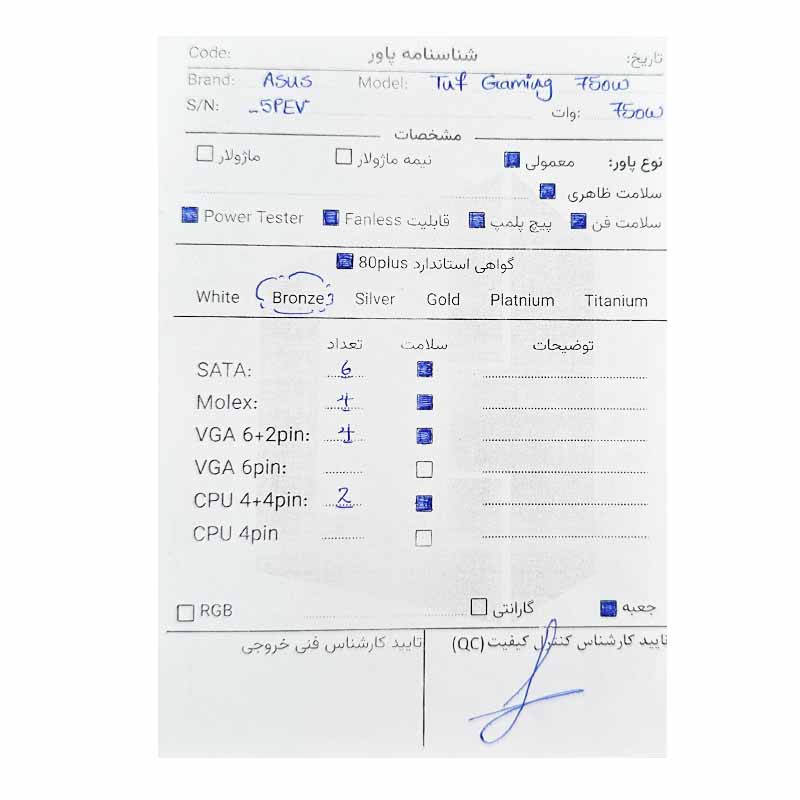 Code: شناسنامه پاور تاریخ:
Brand: ASUS Model: Tuf Gaming 750W
S/N: _5PEV وات: 750W
مشخصات
نوع پاور: معمولی نیمه ماژولار ماژولار
سلامت ظاهری
سلامت فن پیچ پلمپ قابلیت Fanless Power Tester
گواهی استاندارد 80plus
White Bronze Silver Gold Platnium Titanium
تعداد سلامت توضیحات
SATA: 6
Molex: 4
VGA 6+2pin: 4
VGA 6pin:
CPU 4+4pin: 2
CPU 4pin
جعبه گارانتی RGB
تایید کارشناس کنترل کیفیت (QC) تایید کارشناس فنی خروجی